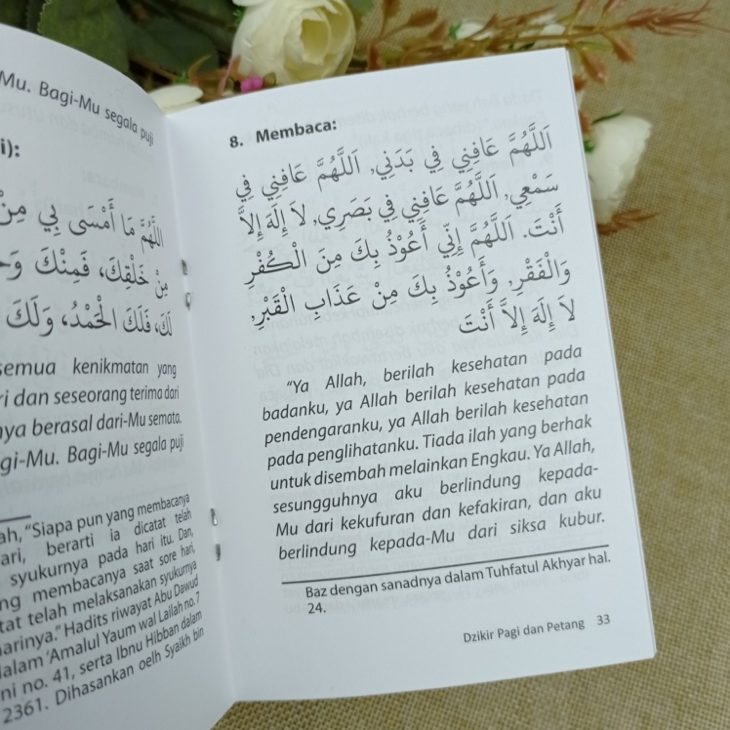 Mu. Bagi-Mu segala puji
i):
اَللَّهُمَّ مَا أَمْسَى بِي مِنْ
مِنْ خَلْقِكَ، فَمِنْكَ
لَكَ، فَلَكَ الْحَمْدُ، وَلَكَ
semua kenikmatan yang
ri dan seseorang terima dari
nya berasal dari-Mu semata.
gi-Mu. Bagi-Mu segala puji
ah, "Siapa pun yang membacanya
ari, berarti ia dicatat telah
syukurnya pada hari itu. Dan,
ng membacanya saat sore hari,
tat telah melaksanakan syukurnya
harinya." Hadits riwayat Abu Dawud
dalam 'Amalul Yaum wal Lailah no. 7
ni no. 41, serta Ibnu Hibban dalam
2361. Dihasankan oelh Syaikh bin
8. Membaca:
اَللَّهُمَّ عَافِنِي فِي بَدَنِي, اَللَّهُمَّ عَافِنِي فِي
سَمْعِي, اَللَّهُمَّ عَافِنِي فِي بَصَرِي, لاَ إِلَهَ إِلاَّ
أَنْتَ. اَللَّهُمَّ إِنِّي أَعُوْذُ بِكَ مِنَ الْكُفْرِ
وَالْفَقْرِ, وَأَعُوْذُ بِكَ مِنْ عَذَابِ الْقَبْرِ,
لاَ إِلَهَ إِلاَّ أَنْتَ
"Ya Allah, berilah kesehatan pada
badanku, ya Allah berilah kesehatan pada
pendengaranku, ya Allah berilah kesehatan
pada penglihatanku. Tiada ilah yang berhak
untuk disembah melainkan Engkau. Ya Allah,
sesungguhnya aku berlindung kepada-
Mu dari kekufuran dan kefakiran, dan aku
berlindung kepada-Mu dari siksa kubur.
Baz dengan sanadnya dalam Tuhfatul Akhyar hal.
24.
Dzikir Pagi dan Petang 33